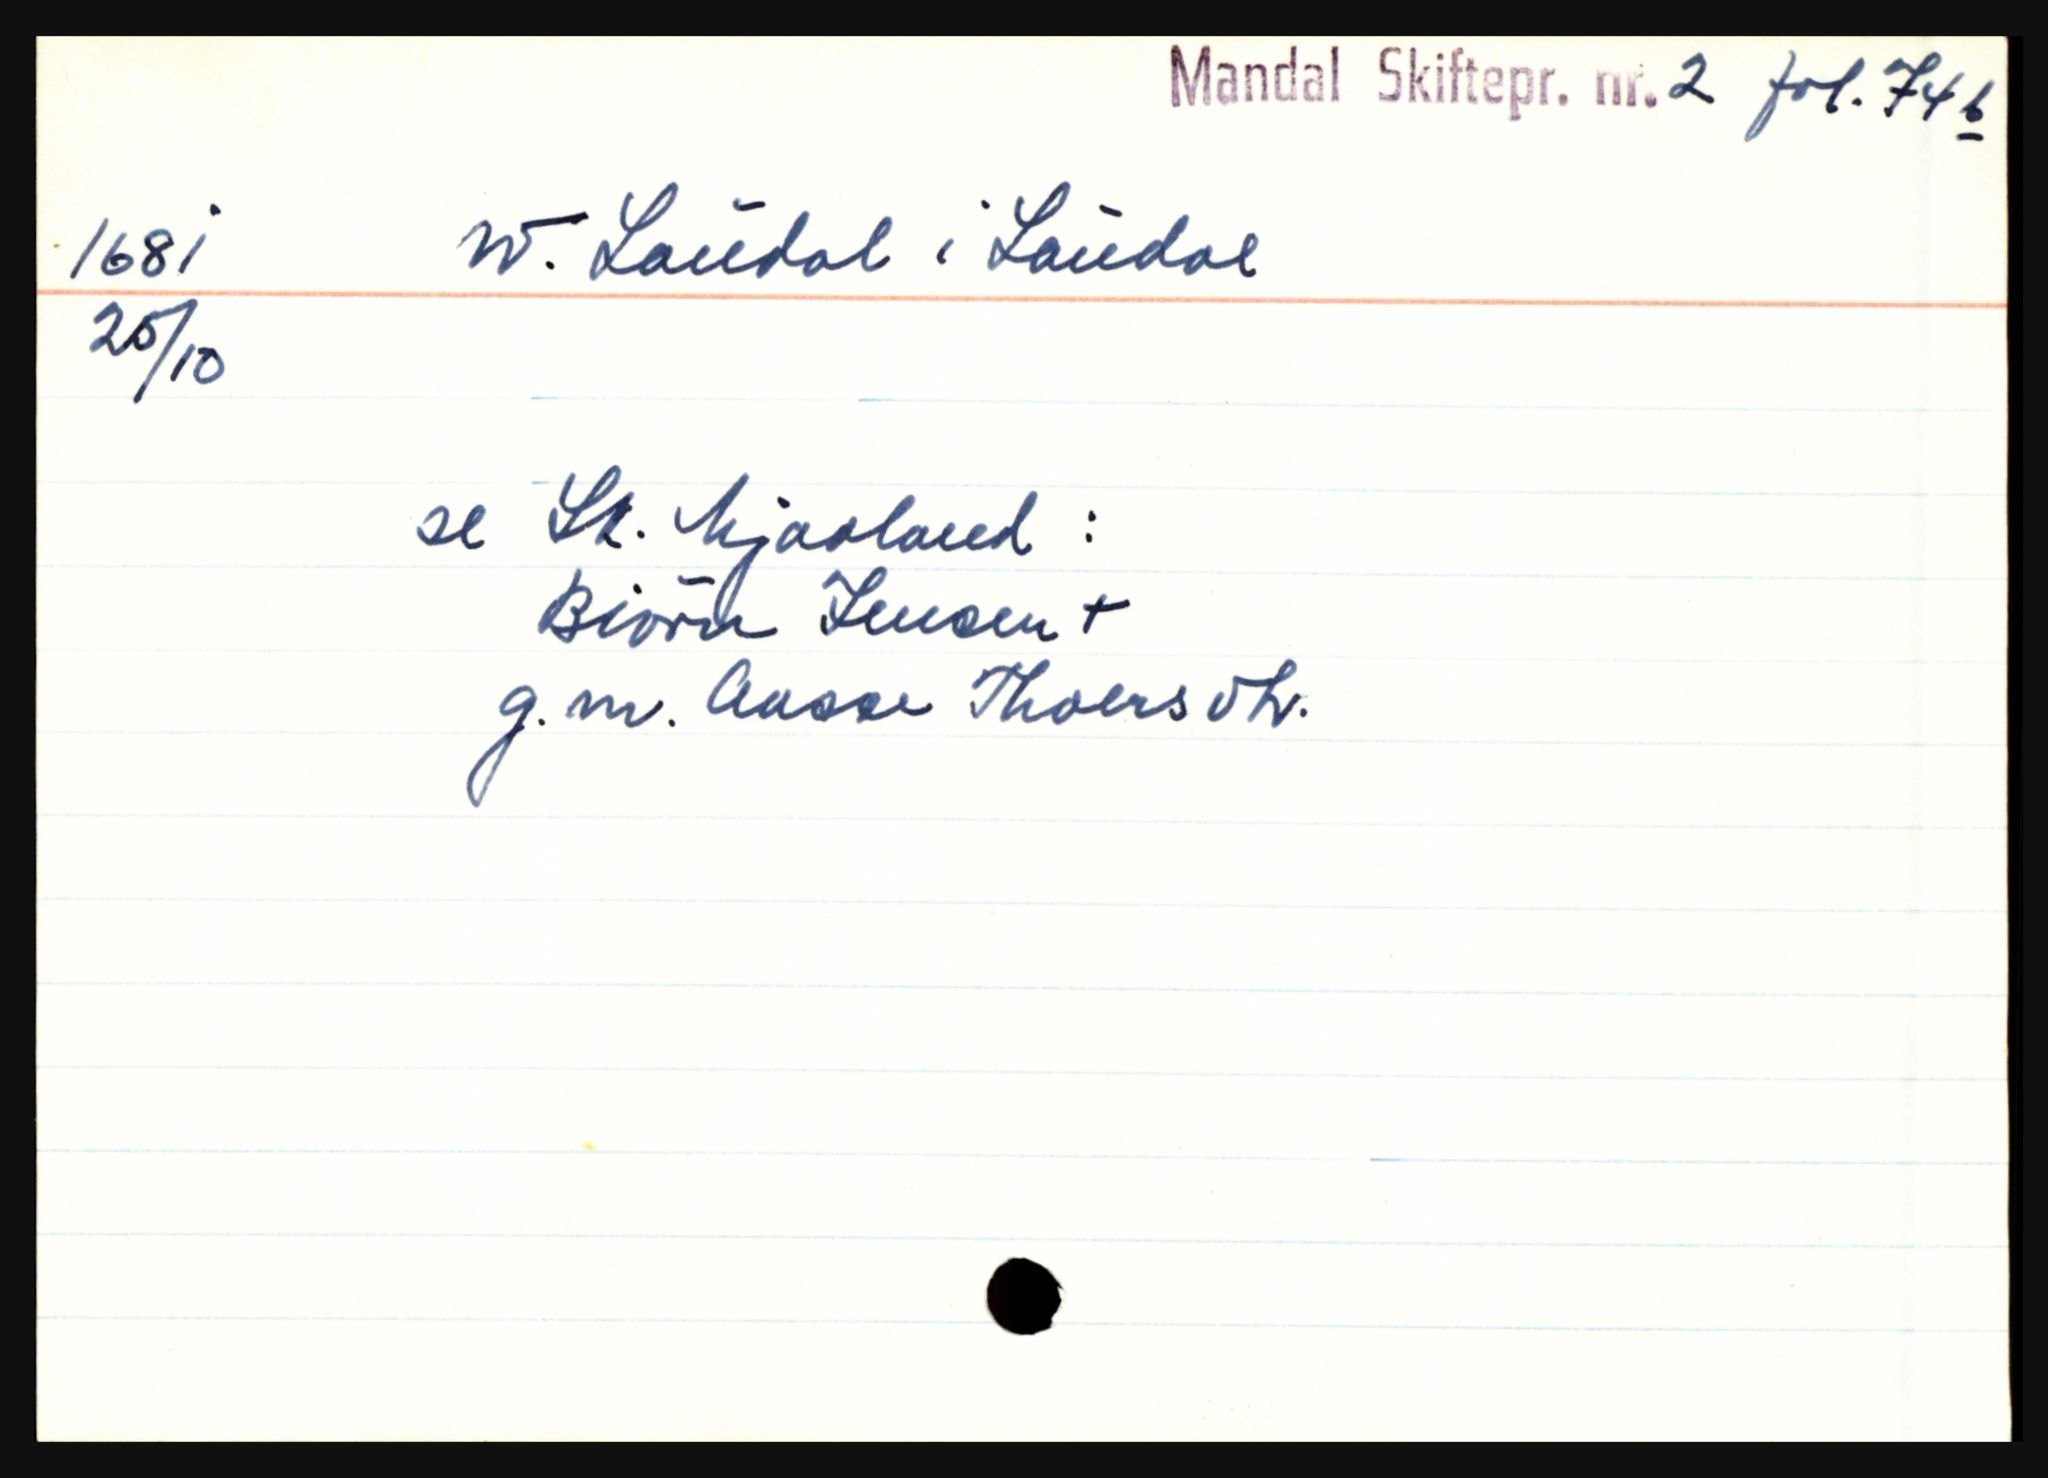 Mandal Skiftepr. nr. 2 fol. 74b
1681 N. Laudal i Laudal
25/10
se St. Mjaaland :
Biørn Jensen +
g.m. Aasse Thoersdtr.